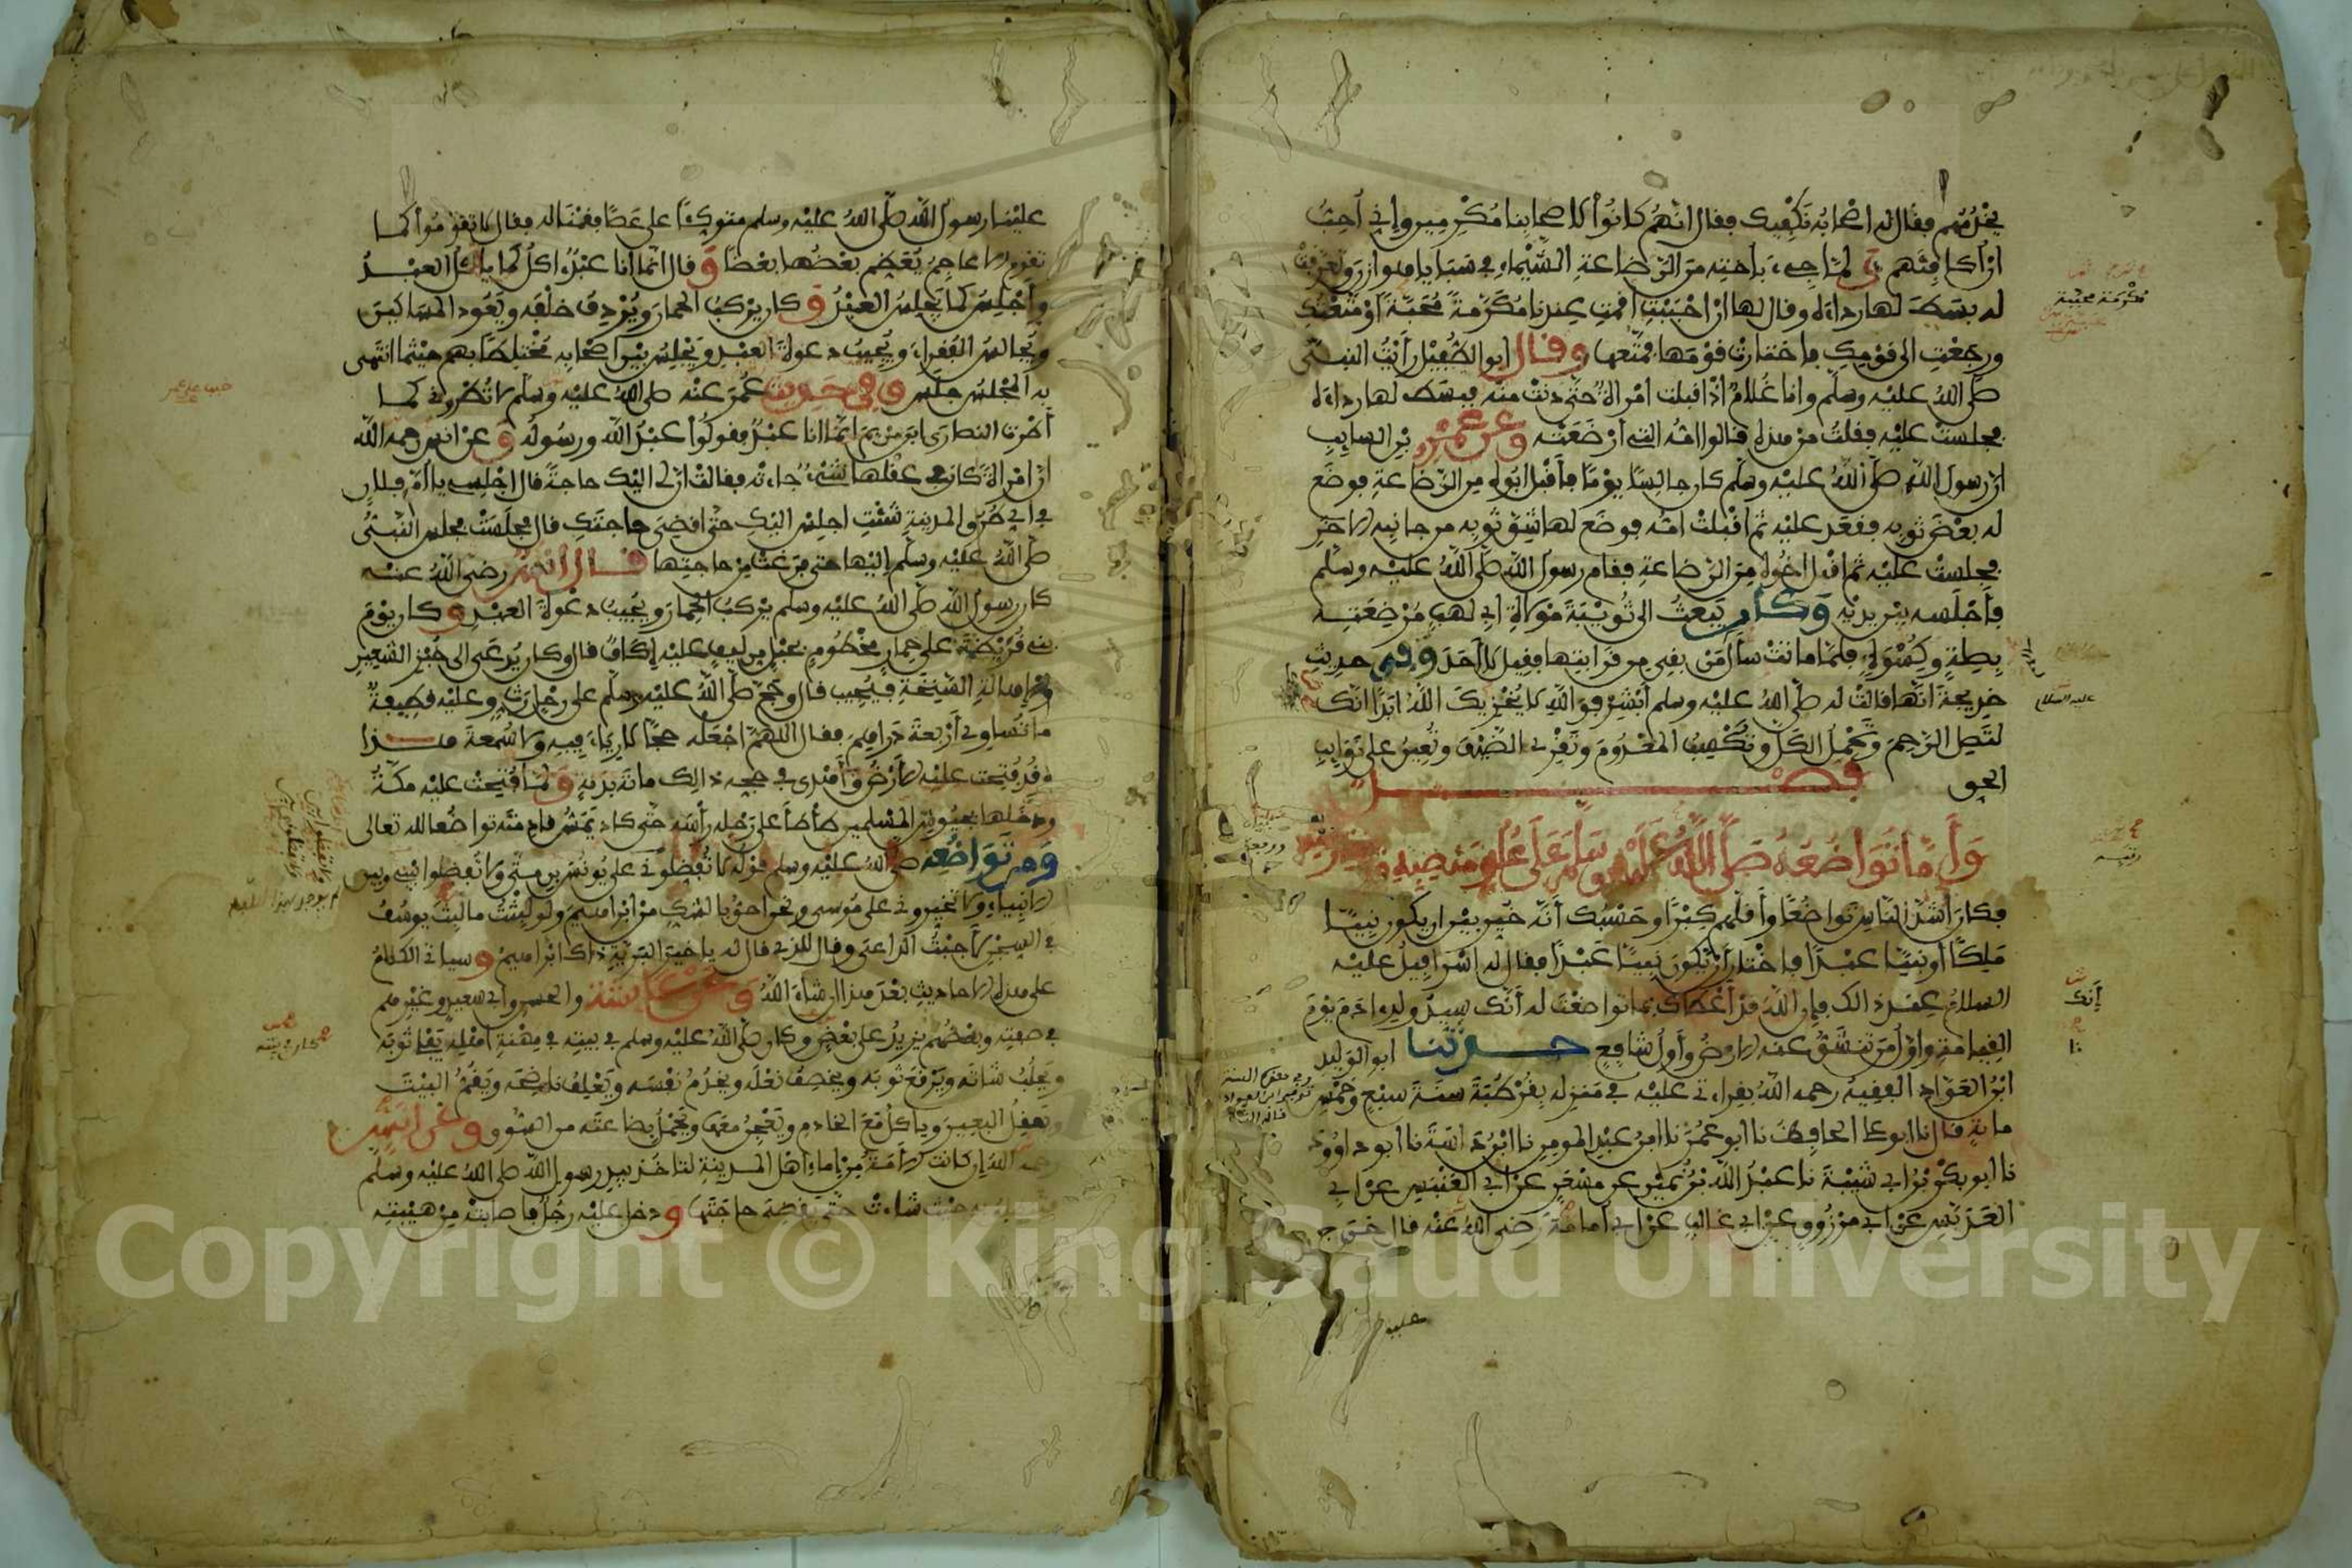 يخدمهم فقال له اصحابه نكفيك فقال انهم كانوا لاصحابنا مكرمين واني احب
ان اكافئهم ولما جيء باخته من الرضاعة الشيماء في سبايا هوازن وتعرفت
له بسط لها رداءه وقال لها ان احببت اقمت عندنا مكرمة محبة او متعتك
ورجعت الى قومك فاختارت قومها فمتعها وقال ابو الطفيل رأيت النبي
صلى الله عليه وسلم وانا غلام اذ اقبلت امرأة حتى دنت منه فبسط لها رداءه
فجلست عليه فقلت من هذه قالوا امه التي ارضعته وعن عمر بن السايب
ان رسول الله صلى الله عليه وسلم كان جالسا يوما فاقبل ابوه من الرضاعة فوضع
له بعض ثوبه فقعد عليه ثم اقبلت امه فوضع لها شق ثوبه من جانبه الاخر
فجلست عليه ثم اقبل اخوه من الرضاعة فقام رسول الله صلى الله عليه وسلم
فأجلسه بين يديه وكان يبعث الى ثويبة مولاة ابي لهب مرضعته
بصلة وكسوة فلما ماتت سأل من بقي من قرابتها فقيل لا احد وفي حديث
خديجة انها قالت له صلى الله عليه وسلم ابشر فوالله لا يخزيك الله ابدا انك
لتصل الرحم وتحمل الكل وتكسب المعدوم وتقري الضيف وتعين على نوايب
الحق
فصل
وأما تواضعه صلى الله عليه وسلم على علو منصبه
فكان أشد الناس تواضعا وأقلهم كبرا وحسبك أنه خير بين ان يكون نبيا
ملكا أو نبيا عبدا فاختار أن يكون نبيا عبدا فقال له اسرافيل عليه
السلام عند ذلك فإن الله قد أعطاك بما تواضعت له أنك سيد ولد ءادم يوم
القيامة واول من تنشق عنه الارض وأول شافع حدثنا ابو الوليد
ابن العواد الفقيه رحمه الله بقراءتي عليه في منزله بقرطبة سنة سبع وخمس
ماية قال نا ابو علي الحافظ نا ابو عمر نا ابن عبد المومن نا ابن داسة نا ابو داوود
نا ابو بكر بن ابي شيبة نا عبد الله بن نمير عن مسعر عن ابي العنبس عن ابي
العدبس عن ابي مرزوق عن ابي غالب عن ابي امامة رضي الله عنه قال خرج
مكرمة محبة
عليه السلام
أنك
علينا
علينا رسول الله صلى الله عليه وسلم متوكئا على عصا فقمنا له فقال لا تقوموا كما
تقوم الاعاجم يعظم بعضها بعضا وقال انما أنا عبد ءاكل كما ياكل العبد
وأجلس كما يجلس العبد وكان يركب الحمار ويردف خلفه ويعود المساكين
ويجالس الفقراء ويجيب دعوة العبد ويجلس بين اصحابه مختلطا بهم حيثما انتهى
به المجلس جلس وفي حديث عمر عنه صلى الله عليه وسلم لا تطروني كما
أطرت النصارى ابن مريم انما انا عبد فقولوا عبد الله ورسوله وعن انس رحمه الله
ان امرأة كان في عقلها شيء جاءته فقالت ان لي اليك حاجة قال اجلسي يا أم فلان
في اي طرق المدينة شئت اجلس اليك حتى اقضي حاجتك قال فجلست فجلس النبي
صلى الله عليه وسلم إليها حتى فرغت من حاجتها قال انس رضي الله عنه
كان رسول الله صلى الله عليه وسلم يركب الحمار ويجيب دعوة العبد وكان يوم
بني قريضة على حمار مخطوم بحبل من ليف عليه إكاف قال وكان يدعى الى خبز الشعير
والاهالة السنخة فيجيب قال وحج صلى الله عليه وسلم على رحل رث وعليه قطيفة
ما تساوي أربعة دراهم فقال اللهم اجعله حجا لا رياء فيه ولا سمعة هذا
وقد فتحت عليه الارض وأهدى في حجه ذلك ماية بدنة ولما فتحت عليه مكة
ودخلها بجيوش المسلمين طأطأ على رحله رأسه حتى كاد يمس قادمته تواضعا لله تعالى
ومن تواضعه صلى الله عليه وسلم قوله لا تفضلوني على يونس بن متى ولا تفضلوا بين
الانبياء ولا تخيروني على موسى ونحن احق بالشك من ابراهيم ولو لبثت ما لبث يوسف
في السجن لأجبت الداعي وقال للذي قال له يا خير البرية ذاك ابراهيم وسياتي الكلام
على هذه الاحاديث بعد هذا ان شاء الله وعن عايشة والحسن وابي سعيد وغيرهم
في صفته وبعضهم يزيد على بعض وكان صلى الله عليه وسلم في بيته في مهنة اهله يفلي ثوبه
ويحلب شاته ويرقع ثوبه ويخصف نعله ويخدم نفسه ويعلف ناضحه ويقم البيت
ويعقل البعير وياكل مع الخادم ويعجن معها ويحمل بضاعته من السوق وعن انس
رحمه الله إن كانت الأمة من إماء اهل المدينة لتاخذ بيد رسول الله صلى الله عليه وسلم
حيث شاءت حتى يقضي حاجتها ودخل عليه رجل فاصابته من هيبته
Copyright © King Saud University